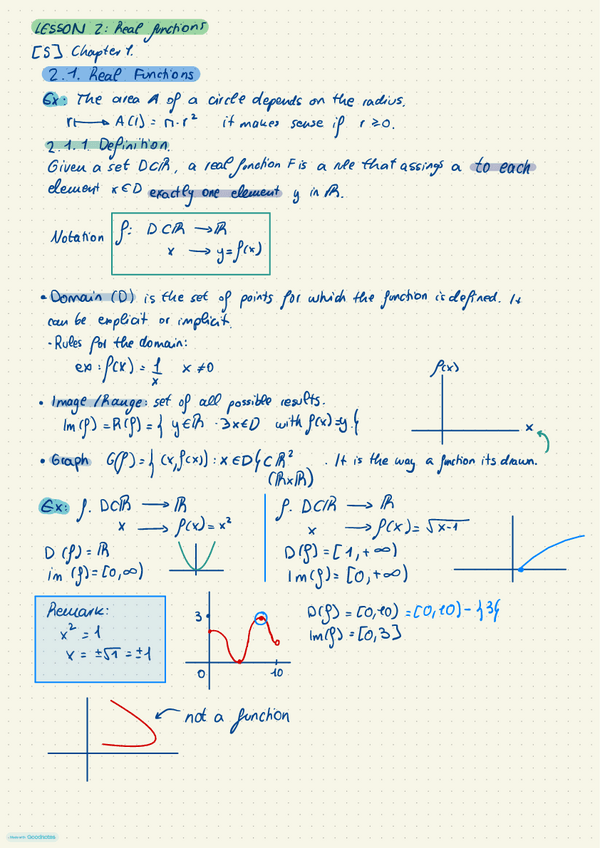 LESSON 2: Real functions
[S] Chapter 1.
2.1. Real Functions
Ex: The area A of a circle depends on the radius.
r ⟼ A(r) = π·r² it makes sense if r ≥ 0.
2.1.1 Definition.
Given a set D⊂ℝ, a real function F is a rule that assings a to each
element x∈D exactly one element y in ℝ.
Notation f: D⊂ℝ → ℝ
x → y = f(x)
• Domain (D) is the set of points for which the function is defined. It
can be explicit or implicit.
- Rules for the domain:
ex: f(x) = 1/x x ≠ 0
f(x)
• Image/Range: set of all possible results.
Im(f) = R(f) = { y∈ℝ · ∃x∈D with f(x)=y }
x
• Graph G(f) = { (x, f(x)) : x∈D } ⊂ ℝ² . It is the way a function its drawn.
(ℝxℝ)
Ex: f: D⊂ℝ → ℝ
x → f(x) = x²
D(f) = ℝ
im(f) = [0, ∞)
f: D⊂ℝ → ℝ
x → f(x) = √x-1
D(f) = [1, +∞)
Im(f) = [0, +∞)
Remark:
x² = 1
x = ±√1 = ±1
3
0
10
D(f) = [0, 10) = [0, 10) - {3}
Im(f) = [0, 3]
not a function
Made with Goodnotes